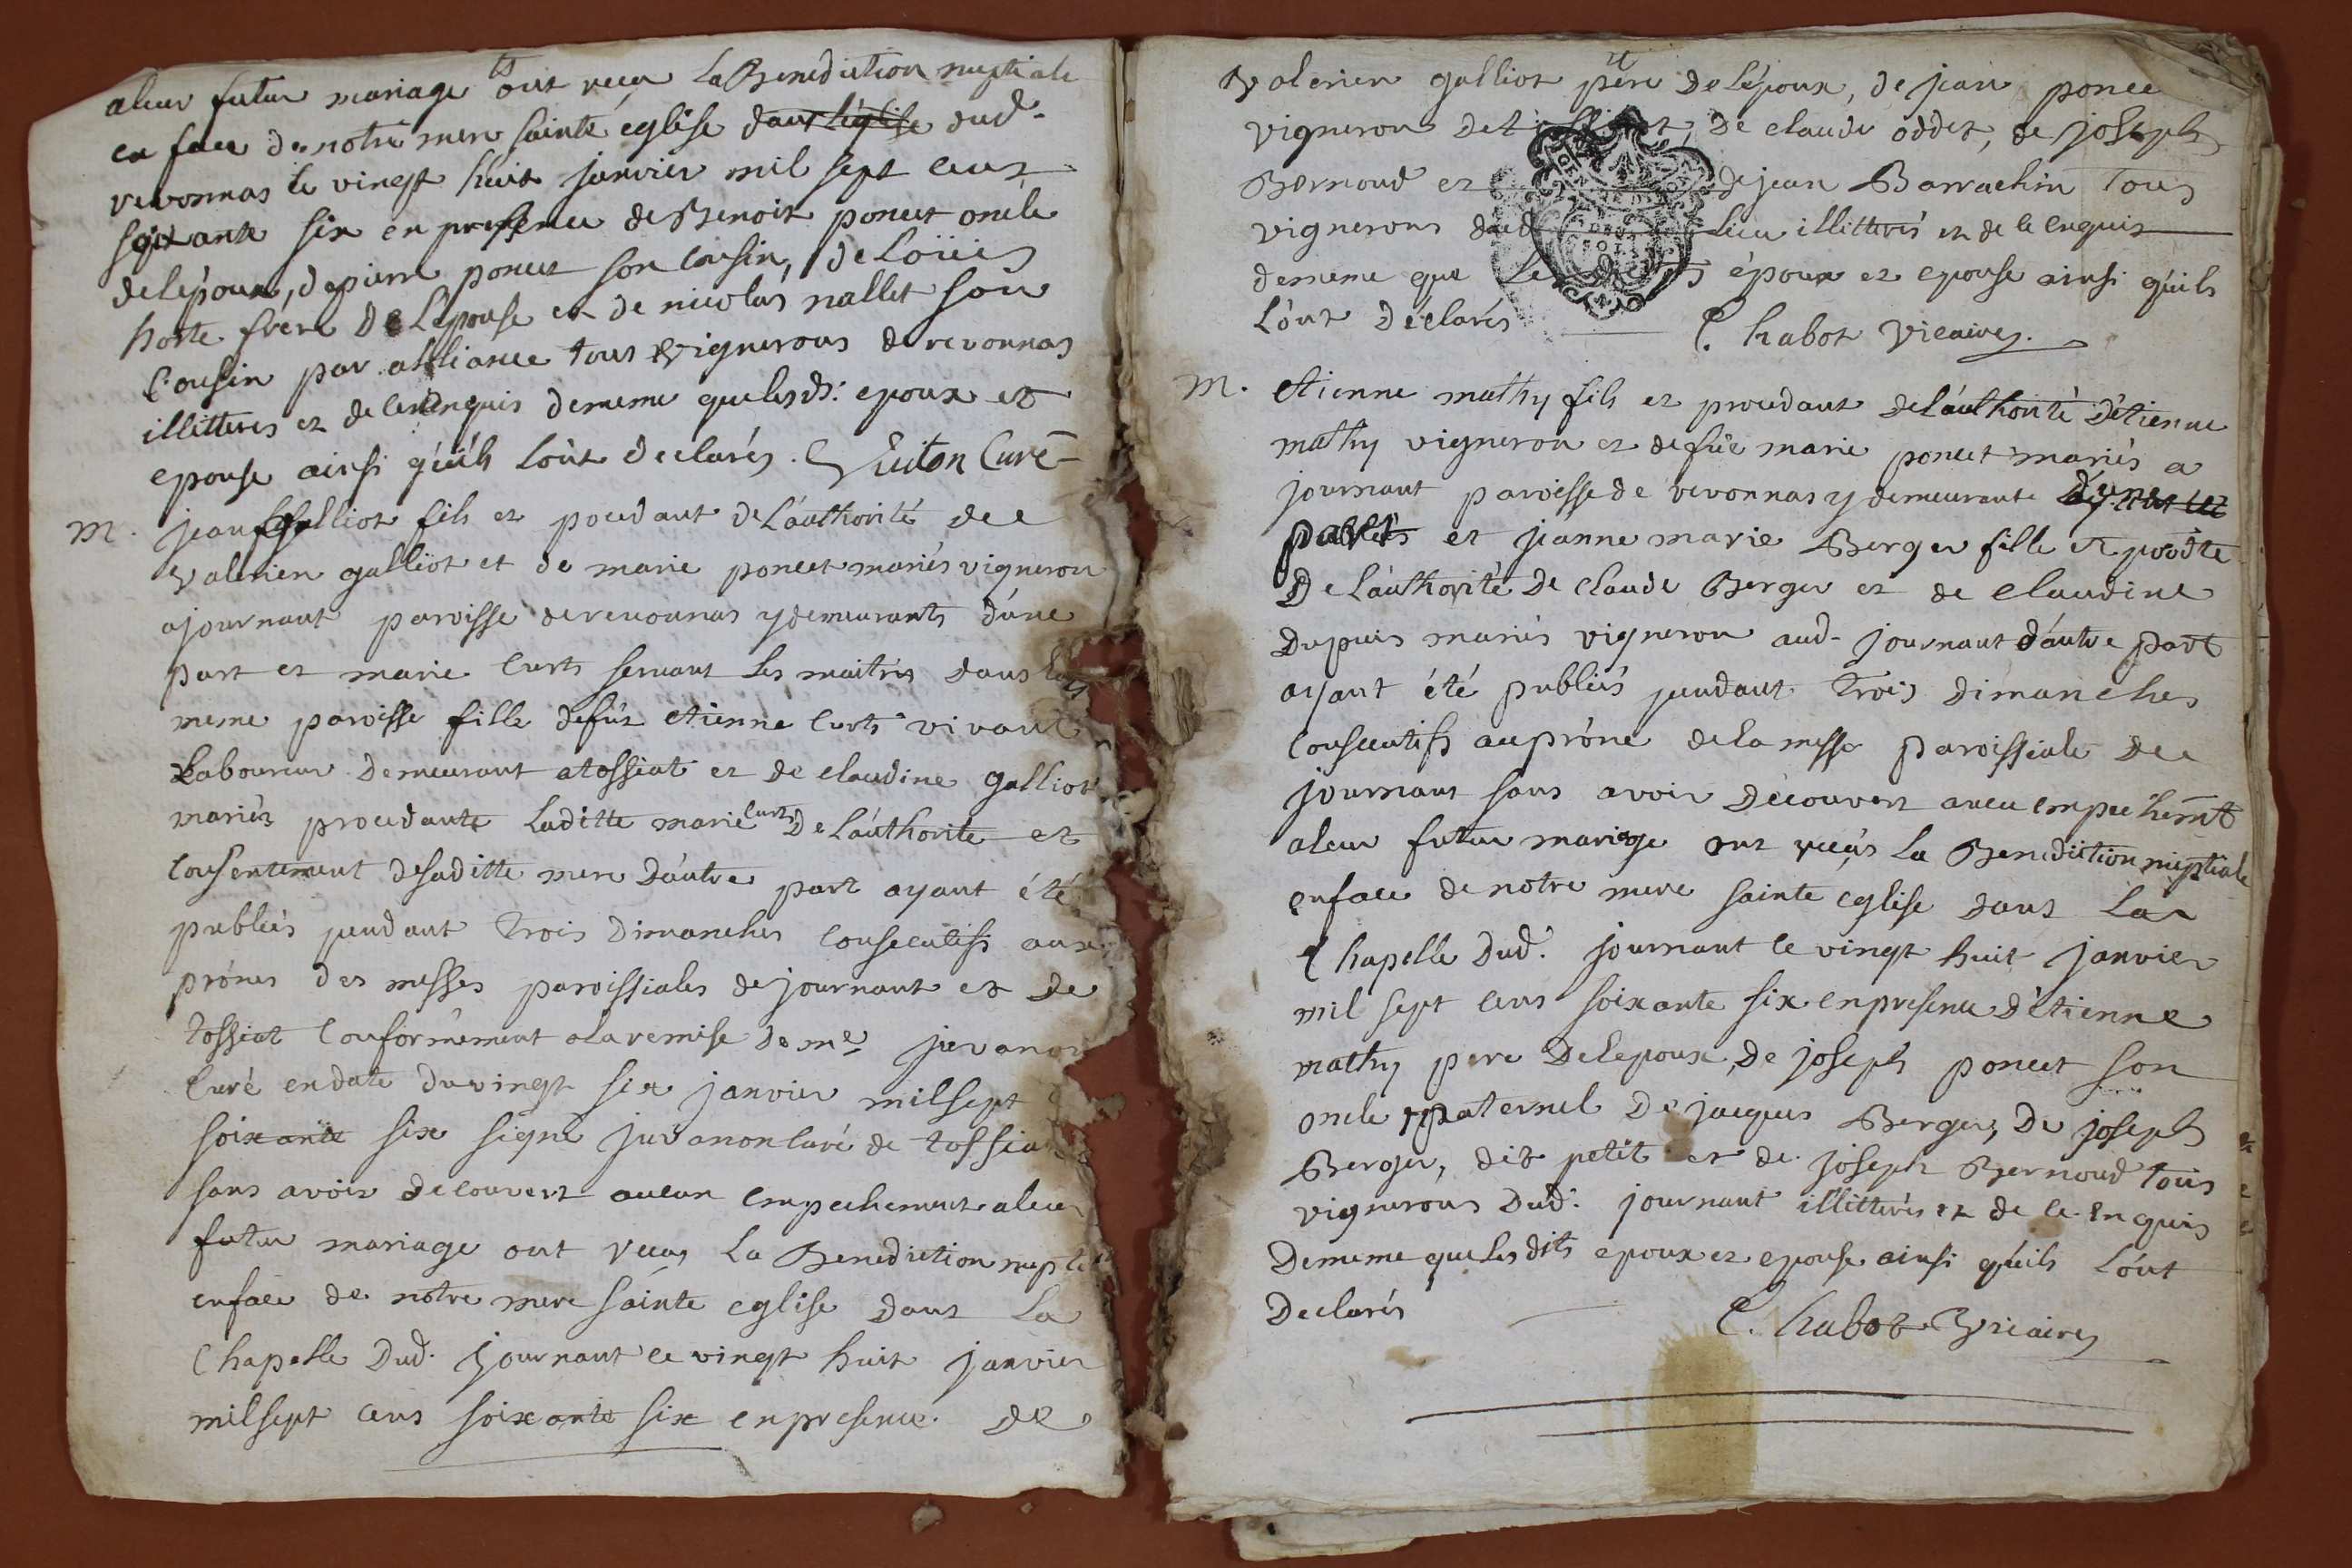 aleur futur mariage ont recu la Benediction nuptiale
en face de notre mere sainte église dans l'église dud.
revonnas le vingt huit janvier mil sept cens
soixante six en presence de Benoit poncet oncle
de l'époux, de pierre poncet son cousin, de Loüis
frere de L'epouse et de nicolas nallet son
Cousin par alliance tous vignerons de revonnas
illitteres et de ce enquis dememe que lesds. epoux et
epouse ainsi qúils lónt declarés. Curé
M. jean galliot fils et procedant de L'authorité de
valerien galliot et de marie poncet mariés vigneron
a journant paroisse de revonnas y demeurants d'une
part et marie Curts servant les maitres dans
meme paroisse fille de fût etienne Curts vivant
Laboureur demeurant a tossiat et de claudine galliot
mariés procedante Laditte marie Curts de L'authorite et
consentement de saditte mere d'autre part ayant été
publiés pendant trois dimanches consecutifs aux
prônes des messes paroissiales de journant et de
tossiat Conformément a la remise de me juvanon
Curé en date du vingt six janvier mil sept
soixante six signé juvanon Curé de tossiat
sans avoir decouvert aucun empechement aleur
futur mariage ont recus La Benediction nuptle
en face de notre mere sainte eglise dans La
Chapelle Dud. journant le vingt huit janvier
mil sept cens soixante six en presence de
valerien galliot père de l'époux, de jean poncet
vigneron de tossiat, de claude oddet, de joseph
Bernoud et de jean Barrachin tous
vignerons dud lieu illitterés et de ce enquis
dememe que Les dits époux et epouse ainsi qúils
L'ont déclarés Chabot vicaire.
M. etienne mathy fils et procedant de L'authorité d'etienne
mathy vigneron et de füe marie poncet mariés a
journant paroisse de revonnas y demeurant d'une
part et jeanne marie Berger fille et procdte
de L'authorité de Claude Berger et de Claudine
Dupuis mariés vigneron aud. journant d'autre part
ayant été publiés pendant trois dimanches
consecutifs au prône de la messe paroissiale de
journant sans avoir découvert aucu empechemt
aleur futur mariage ont recús La Benediction nuptiale
en face de notre mere sainte église dans La
Chapelle Dud. journant le vingt huit janvier
mil sept cens soixante six en presence d'etienne
mathy pere de L'epoux, de joseph poncet son
oncle paternel de jacques Berger, de joseph
Berger, dit petit et de joseph Bernoud tous
vignerons Dud. journant illitterés et de ce enquis
dememe que Les dits epoux et epouse ainsi qúils L'ont
Declarés Chabot vicaire